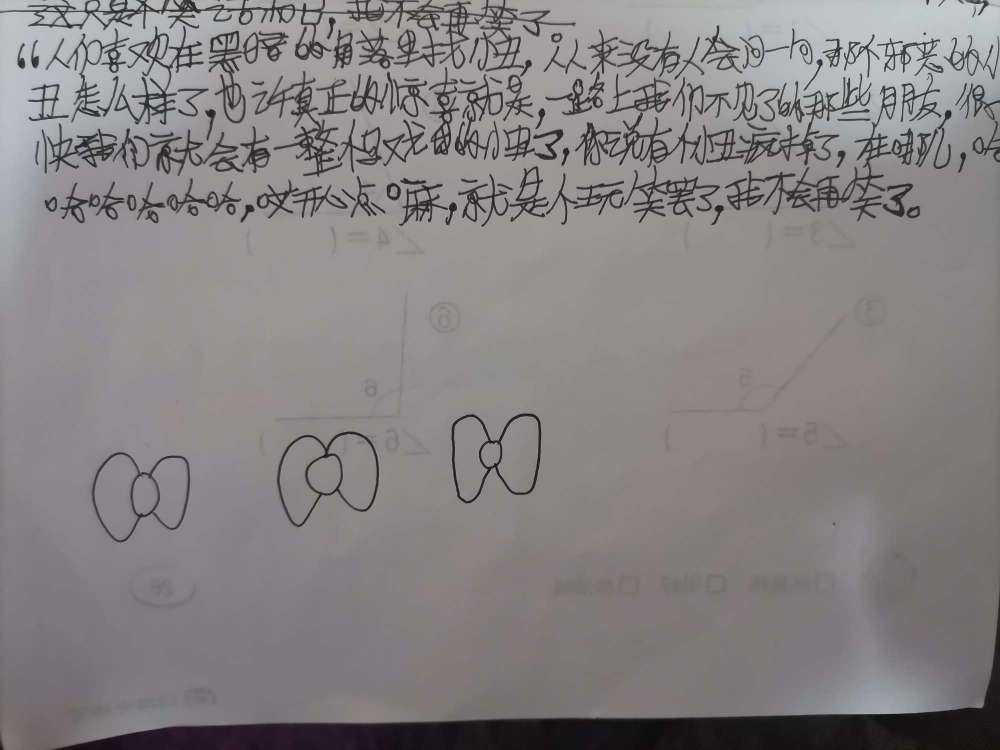 这只是个笑话而已，我不会再笑了。
“人们喜欢在黑暗的角落里找小丑，从来没有人会问一句，那个邪恶的小
丑怎么样了，也许真正的惊喜就是，一路上我们不见了的那些朋友，很
快我们就会有一整个的小丑了，你说有个小丑疯掉了，在哪儿，哈
哈哈哈哈哈，开心点嘛，就是个玩笑罢了，我不会再笑了。
∠4=( )
∠3=( )
⑥
6
5
∠6=( )
∠5=( )